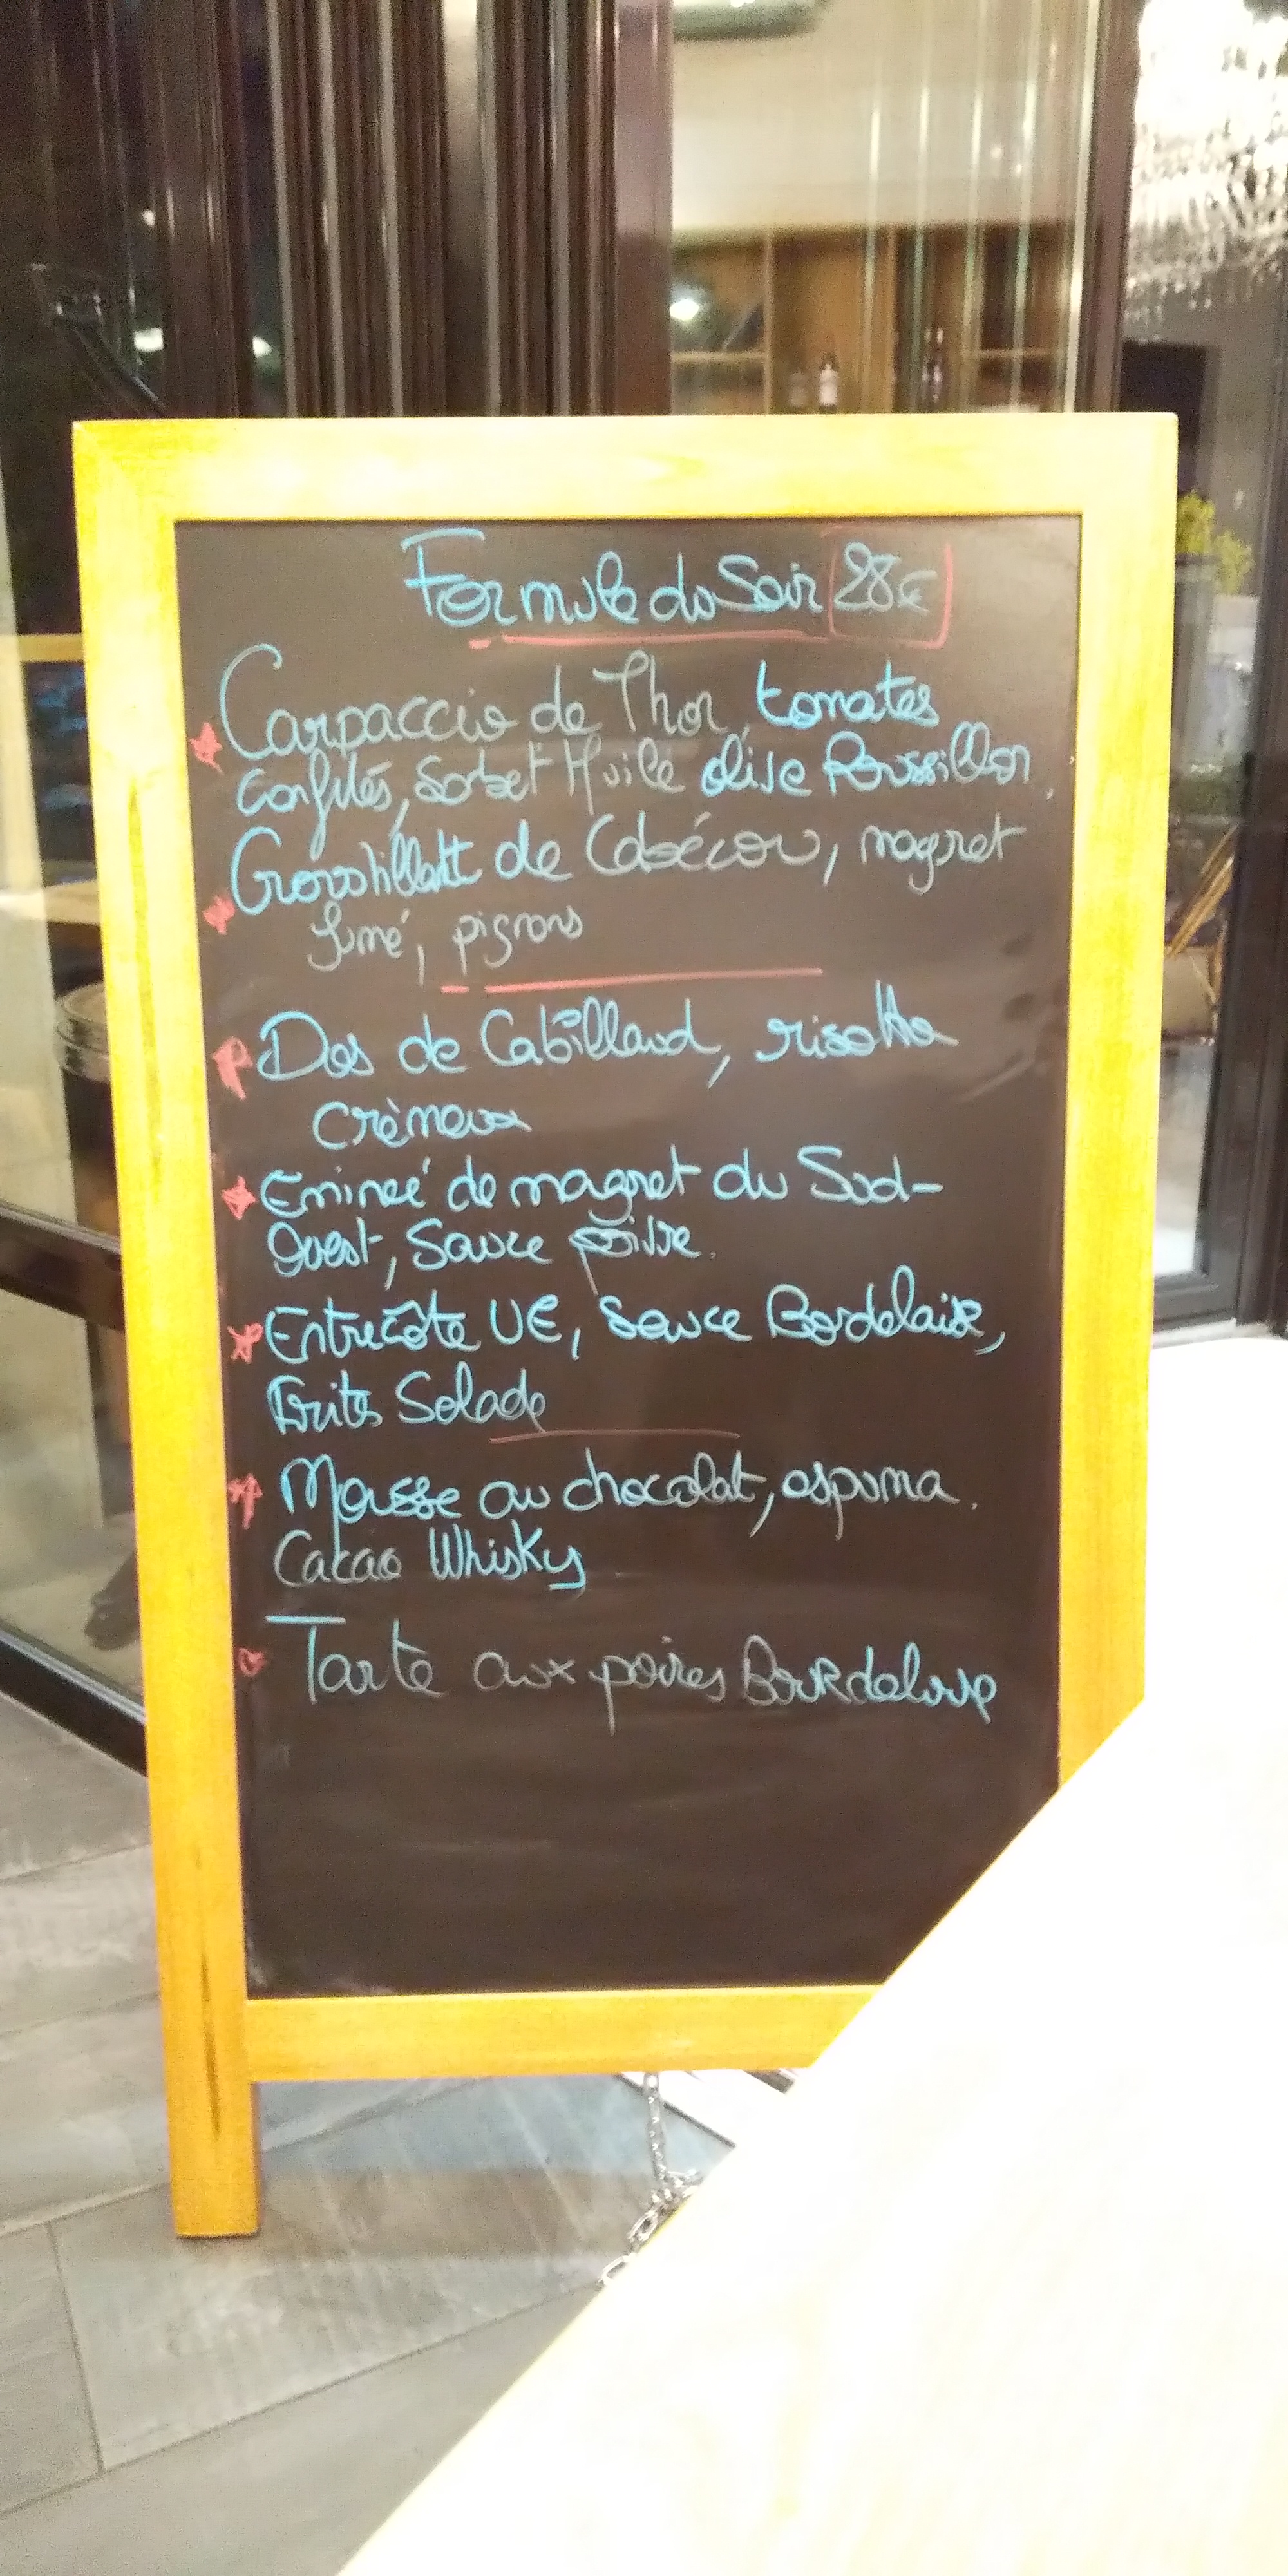 Formule du Soir 28€
Carpaccio de Thon, tomates
Confites, Sorbet Huile olive Roussillon
Croustillant de Cabécou, magret
fumé, pignons
Dos de Cabillaud, risotto
Crèmeux
Emincé de magret du Sud-
Ouest, Sauce poivre.
Entrecôte UE, Sauce Bordelaise,
Frites Salade
Mousse au chocolat, espuma.
Cacao Whisky
Tarte aux poires Bourdeloue